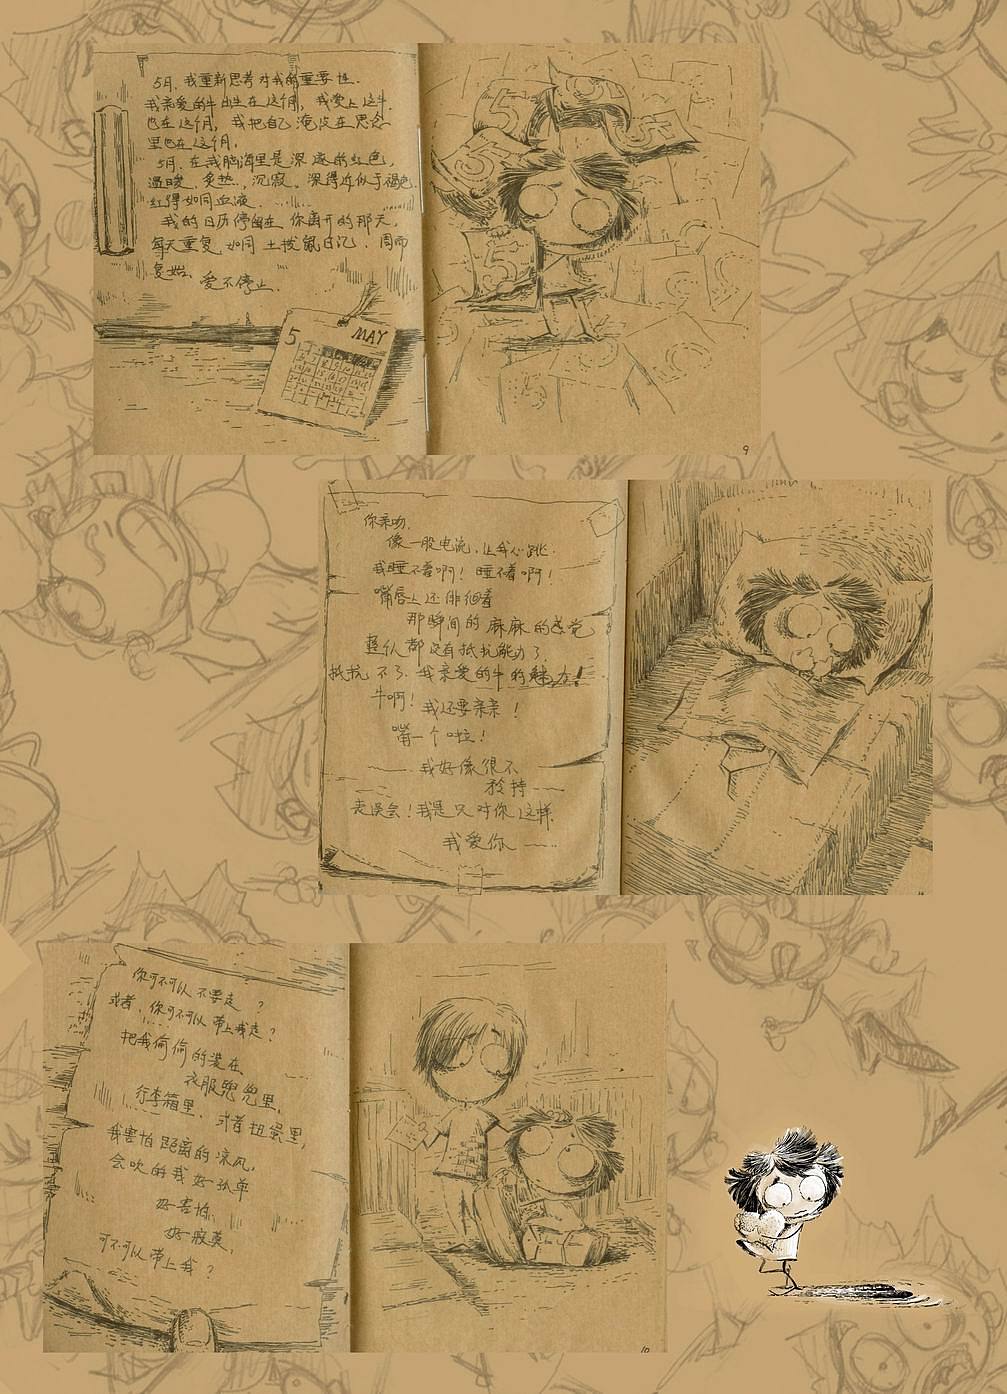 5月,我重新思考对我的重要性.
我亲爱的牛出生在这个月,我爱上这牛
也在这个月,我把自己淹没在思念
里也在这个月.
5月,在我脑海里是深邃的红色,
温暖、炙热、沉寂。深得近似于褐色
红得如同血液.
我的日历停留在你离开的那天,
每天重复,如同土拨鼠日记.周而
复始、
爱不停止.
5 MAY
9
你亲吻.
像一股电流,让我心跳.
我睡不着啊!睡不着啊!
嘴唇上还徘徊着
那瞬间的麻麻的感觉
整个人都没有抵抗能力了,
抵抗不了.我亲爱的牛的魅力!
牛啊!我还要亲亲!
嘴一个啦!
——我好像很不
矜持——
表误会!我是只对你这样.
我爱你——
你可不可以不要走?
或者,你可不可以带上我走?
把我偷偷的装在
衣服兜兜里,
行李箱里、或者扭蛋里,
我害怕距离的凉风,
会吹的我好孤单
好害怕,
好寂寞,
可不可以带上我?
10